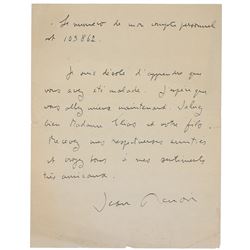 Le numéro de mon compte personnel
est 103.862.
Je suis désolé d'apprendre que
vous avez été malade. J'espère que
vous allez mieux maintenant. Saluez
bien Madame Elias et votre fils.
Recevez mes respectueuses amitiés
et croyez tous à mes sentiments
très amicaux.
Jean Renoir